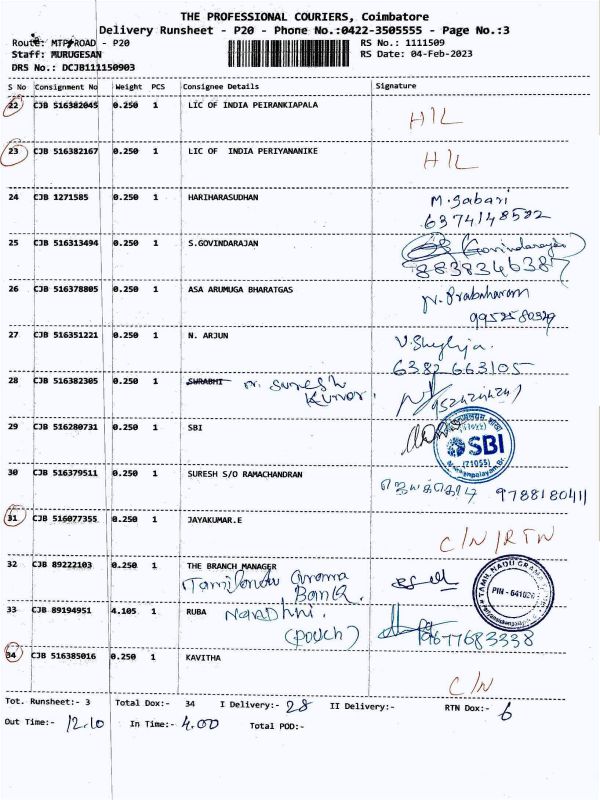 THE PROFESSIONAL COURIERS, Coimbatore
Delivery Runsheet - P20 - Phone No.:0422-3505555 - Page No.:3
Route: MTP ROAD - P20
RS No.: 1111509
Staff: MURUGESAN
RS Date: 04-Feb-2023
DRS No.: DCJB111150903
S No Consignment No Weight PCS Consignee Details Signature
22 CJB 516382045 0.250 1 LIC OF INDIA PEIRANKIAPALA H/L
23 CJB 516382167 0.250 1 LIC OF INDIA PERIYANANIKE H/L
24 CJB 1271585 0.250 1 HARIHARASUDHAN M. Sabari
6374148522
25 CJB 516313494 0.250 1 S.GOVINDARAJAN Govindarajan
8838346387
26 CJB 516378805 0.250 1 ASA ARUMUGA BHARATGAS N. Prabaharan
27 CJB 516351221 0.250 1 N. ARJUN V. Shylja.
6382 663105
28 CJB 516382305 0.250 1 SURABHI M. Suresh
Kumar.
29 CJB 516280731 0.250 1 SBI SBI
(71055)
30 CJB 516379511 0.250 1 SURESH S/O RAMACHANDRAN 9788180411
31 CJB 516077355 0.250 1 JAYAKUMAR.E C/N/RTN
32 CJB 89222103 0.250 1 THE BRANCH MANAGER
Tamilnadu Grama
Bank.
TAMIL NADU GRAMA
PIN - 641020
33 CJB 89194951 4.105 1 RUBA Nandhni.
(pouch) 9677683338
34 CJB 516385016 0.250 1 KAVITHA
C/N
Tot. Runsheet:- 3 Total Dox:- 34 I Delivery:- 28 II Delivery:- RTN Dox:- 6
Out Time:- 12.10 In Time:- 4.00 Total POD:-